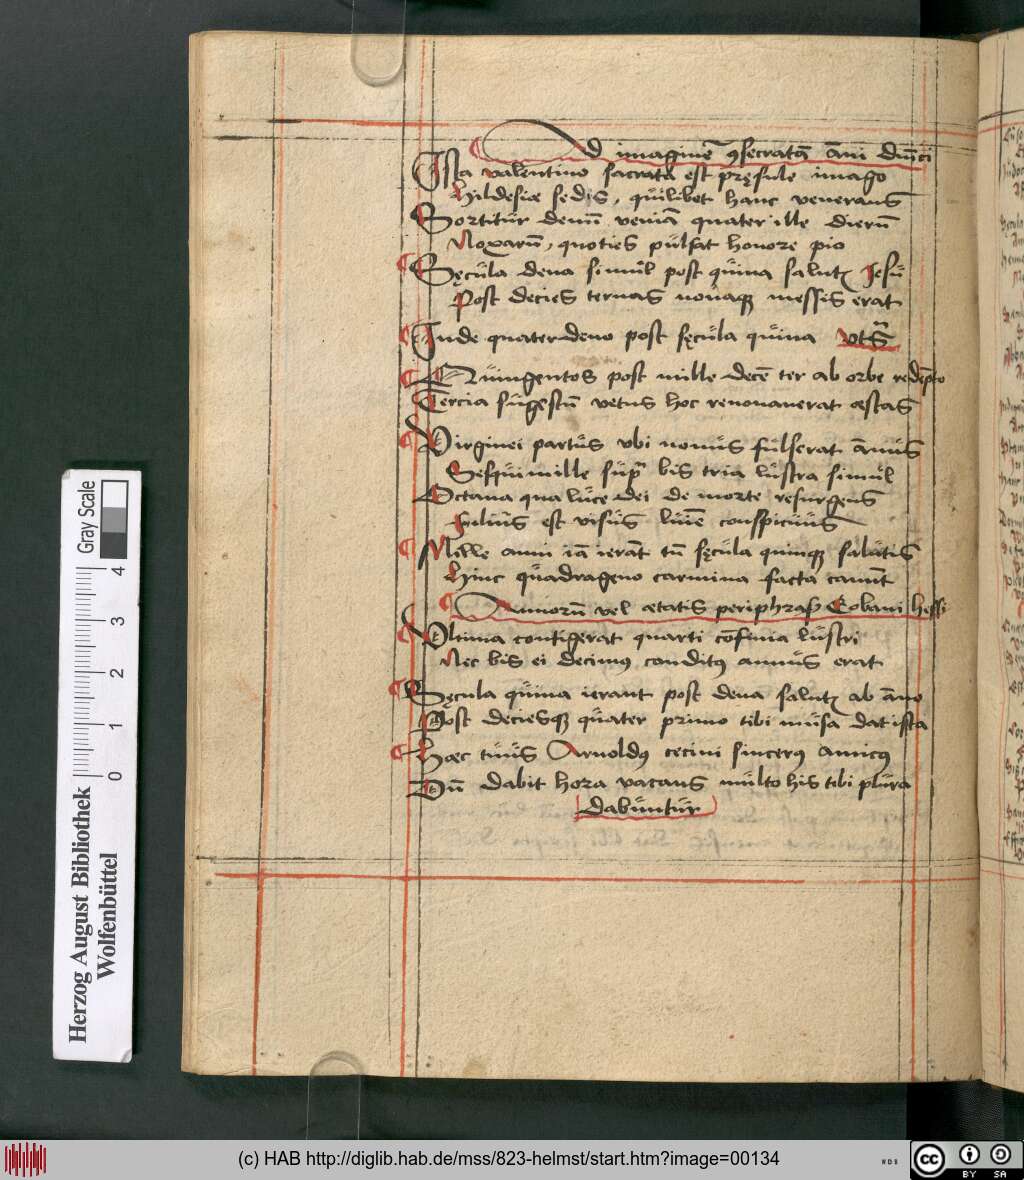 Ad imaginē ꝯsecratā āni diūci
Ista valentino sacrata est pręsule imago
hildesiæ sedis, quilibet hanc venerans
Sortitur demū veniā quater ille dierū
Noxarū, quoties pulsat honore pio
Sęcula dena simul post quina salutꝭ Jesu
Post decies ternas nonaqꝫ messes erat
Inde quaterdeno post sęcula quina vts̄
Quingentos post mille decē ter ab orbe redēpto
Tercia sugestū vetus hoc renovaverat æstas
Virginei partus vbi nonus fulserat ānus
Sesquimille supra bis tria lustra simul
Octava qua luce dei de morte resurgens
Filius est visus luīe conspicuus
Mille anni iā ierāt tū sęcula quinqꝫ salutis
Hinc quadrageno carmina facta canūt
Annorū vel ætatis periphrasꝭ Eobani hessi
Vltima contigerat quarti cōfinia lustri
Nec bis ei decimꝰ conditꝰ annus erat
Sęcula quina ierant post dena salutꝭ ab āno
Post deciesqꝫ quater primo tibi musa dat ista
Hæc tuus Arnoldꝰ cecini sincerꝰ amicꝰ
Dū dabit hora vacans multo his tibi plura
dabuntur
Herzog August Bibliothek
Wolfenbüttel
Gray Scale
0 1 2 3 4
(c) HAB http://diglib.hab.de/mss/823-helmst/start.htm?image=00134
WDB
cc BY SA